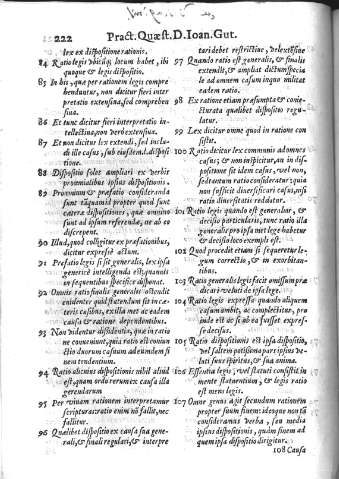 222 Pract. Quæst. D. Ioan. Gut.
lex ex dispositione rationis.
84 Ratio legis vbicũq; locum habet, ibi
quoque & legis dispositio.
85 In his, quæ per rationem legis compre
henduntur, non dicitur fieri inter
pretatio extensiua, sed comprehen
siua.
86 Et tunc dicitur fieri interpretatio in-
tellectiua, non verò extensiua.
87 Et non dicitur lex extendi, sed inclu
di ille casus, sub eiusdem l. disposi
tione.
88 Dispositio solet ampliari ex verbis
proœmialibus ipsius dispositionis.
89 Proœmium & præfatio consideranda
sunt tanquam propter quod sunt
cæteræ dispositiones, quæ omnino
sunt ad ipsum referendæ, ne ab eo
discrepent.
90 Illud, quod colligitur ex præfationibus,
dicitur expressè actum.
91 Præfatio legis si sit generalis, lex ipsa
genericè intelligenda est, quamuis
in sequentibus specificè disponat.
92 Omnis ratio finalis generalis ostendit
euidenter quid statuendum sit in cæ-
teris casibus, ex illa met ac eadem
causa & ratione dependentibus.
93 Non videntur dissidentes, quæ in ratio
ne conueniunt, quia ratio est coniun
ctio duorum casuum ad eundem fi
nem tendentium.
94 Ratio obtinens dispositionis nihil aliud
est, quàm ordo rerum ex causa illa
gerendarum
95 Per viuam rationem interpretamur
scripturas: ratio enim nõ fallit, nec
fallitur.
96 Quælibet dispositio ex causa sua gene-
rali, & finali regulari, & interpre
tari debet restrictiuè, vel extensiuè
97 Quando ratio est generalis, & finalis
extendit, & ampliat dictum specia
le ad omnem casum in quo militat
eadem ratio.
98 Ex ratione etiam præsumpta & conie-
cturata qualibet dispositio regu-
latur.
99 Lex dicitur omne quod in ratione con
sistit.
100 Ratio dicitur lex communis ad omnes
casus; & non inspicitur, an in dis-
positione sit idem casus, vel non,
sed eorum ratio consideratur: quia
non sufficit diuersificari casus, nisi
ratio diuersitatis reddatur.
101 Ratio legis quando est generalis, &
decisio particularis, tunc ratio illa
generalis pro ipsa met lege habetur
& decisio loco exempli est.
102 Quod procedit etiam si sequeretur le-
gum correctio, & in exorbitan-
tibus.
103 Ratio generalis legis facit omissum præ
dicari & reduci de ipsa lege.
104 Ratio legis expressa quando aliquem
casum ambit, ac complectitur, pro
inde est ac si ab ea fuisset expres-
sè decisus.
105 Ratio dispositionis est ipsa dispositio,
vel saltem potissima pars ipsius ve-
luti eius spiritus, & sua anima.
106 Essentia legis, vel statuti consistit in
mente statuentium, & legis ratio
est mens legis.
107 Omne genus agit secundum rationem
propter suum finem: ideoque non tã
consideramus verba, seu media
ipsius dispositionis, quàm finem ad
quem ipsa dispositio dirigitur.
108 Causa